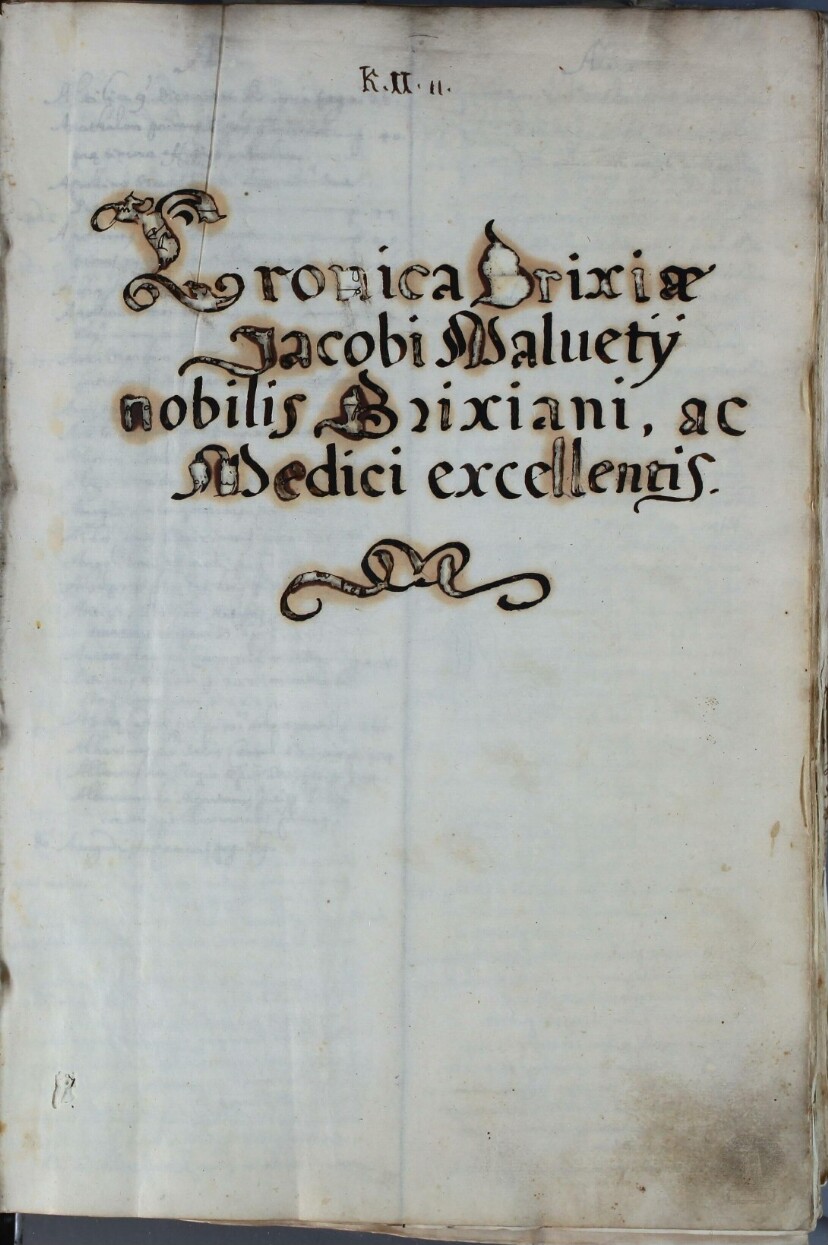 K.II.11.
Cronica Brixiæ
Jacobi Maluetij
nobilis Brixiani, ac
Medici excellentis.